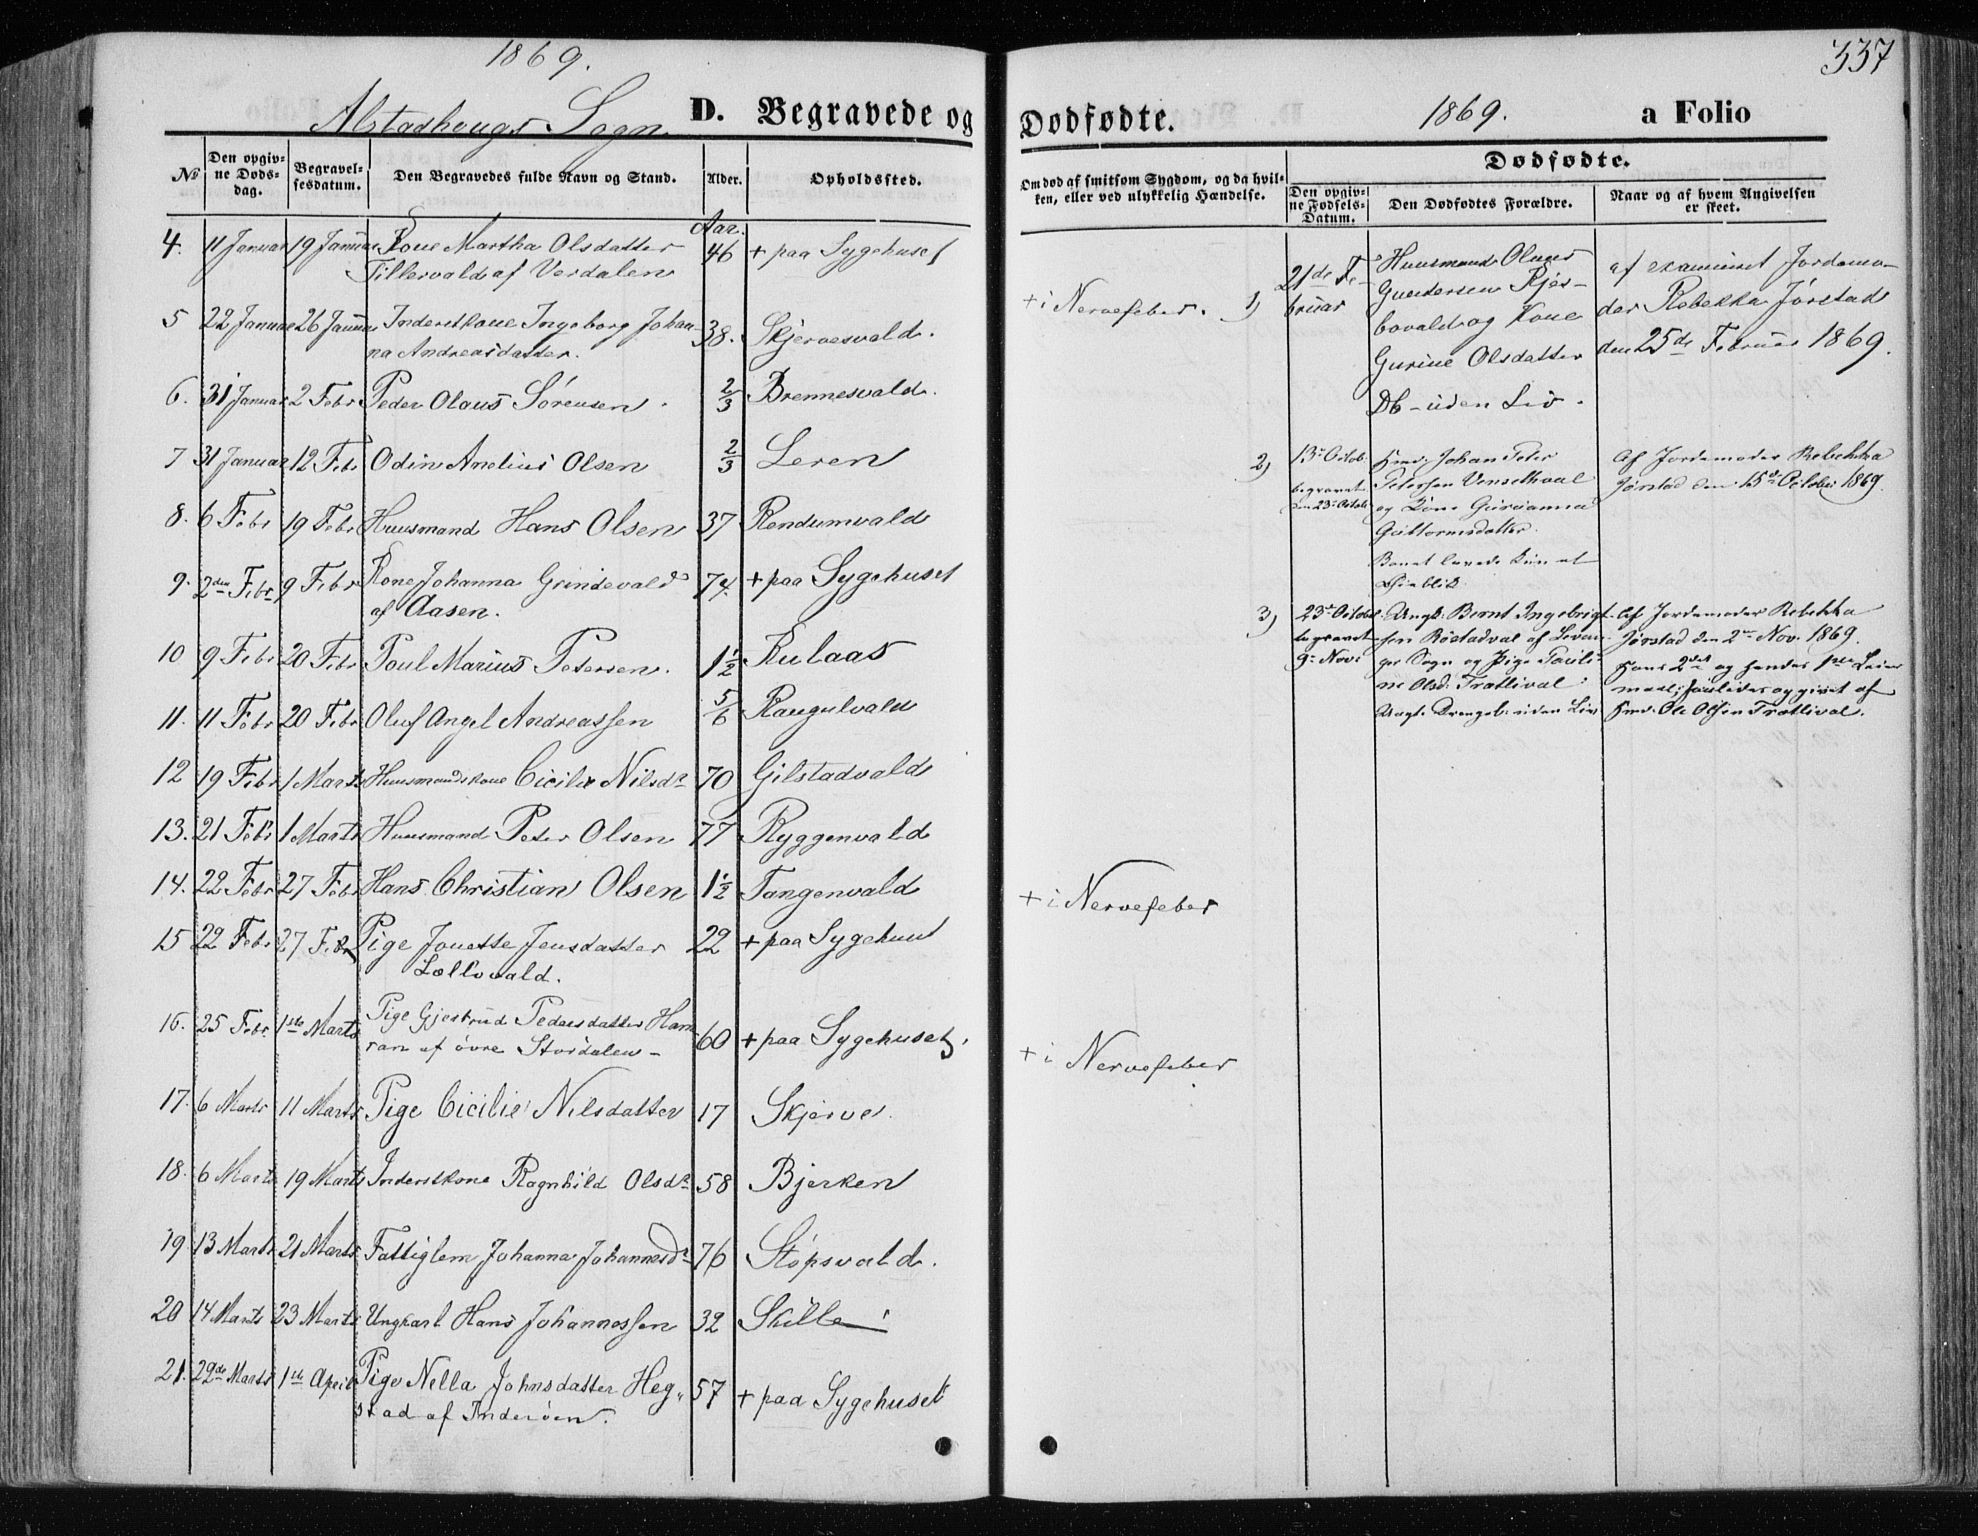 1869.
Alstadhougs Sogn D. Begravede og
No Den opgivne Dødsdag. Begravelsesdatum. Den Begravedes fulde Navn og Stand. Alder. Opholdssted.
Aar.
4. 11 Januar 19 Januar Kone Martha Olsdatter 46 + paa Sygehuset
Tillervald af Verdalen
5 22 Januar 26 Januar Inderstkone Ingeborg Johan- 38. Skjervesvald.
na Andreasdatter.
6. 31 Januar 2 Febr Peder Olaus Sørensen. 2/3 Brennesvald.
7 31 Januar 12 Febr Odin Anelius Olsen 2/3 Leren
8. 6 Febr 19 Febr Huusmand Hans Olsen 37 Rendumvald
9. 2den Febr. 9 Febr Kone Johanna Grindevald 74. + paa Sygehuset
af Aasen.
10 9 Febr 20 Febr Poul Marius Petersen. 1 1/2 Kulaas
11. 11 Febr 20 Febr Oluf Angel Andreassen 5/6 Raugulvald
12 19 Febr 1 Marts Huusmandskone Cicilie Nilsdr 70 Gilstadvald
13. 21 Febr 1 Marts Huusmand Peter Olsen 77 Ryggenvald
14. 22 Febr 27 Febr Hans Christian Olsen 1 1/2 Tangenvald
15 22 Febr 27 Febr Pige Jonette Jensdatter 22 + paa Sygehuset
vald.
16. 25 Febr. 1ste Marts Pige Gjertrud Pedersdatter Ham- 60 + paa Sygehuset.
ran af øvre Stordalen-
17. 6 Marts 11 Marts Pige Cicilie Nilsdatter 17 Skjerve.
18. 6 Marts 19 Marts Inderstkone Ragnhild Olsdr 58 Bjerken
19. 13 Marts 21 Marts Fattiglem Johanna Johannesdr 76 Stopsvald.
20 14 Marts 23 Marts Ungkarl Hans Johannessen 32 Skille
21. 29de Marts 1ste April Pige Nella Johnsdatter Heg- 57 + paa Sygehuset
stad af Inderøen.
337
Dødfødte. 1869. a Folio
Om død af smitsom Sygdom, og da hvilken, eller ved ulykkelig Hændelse.
Dødfødte.
Den opgivne Fødsels-Datum. Den Dødfødtes Forældre. Naar og af hvem Angivelsen er skeet.
+ i Nervefeber.
1) 21de Februar
Huusmand Olaus
Gundersen Rjes-
bovald og Kone
Gurine Olsdatter
Db - uden Liv.
af examineret Jordemo-
der Rebekka Jørstad
den 25de Februar 1869.
2) 13de Octob
begravet
den 23de Octob
Hmd. Johan Peter
Petersen Venset
og Kone Gurianna
Guttormsdatter.
Barnet levede kun et
Øieblik.
Af Jordemoder Rebekka
Jørstad den 15de October 1869.
3) 23de Octob
begravet
9de Nov:
Ungk. Bernt Ingebrigt-
sen Røstadval af Levan-
ger Sogn og Pige Pauli-
ne Olsd. Trætlival.
Uægte Drengeb. uden Liv
Af Jordemoder Rebekka
Jørstad den 2den Nov. 1869.
Hans 2det og hendes 1ste Leier-
maal; opgivet af
Hmd. Ole Olsen Trætlival.
+ i Nervefeber
+ i Nervefeber